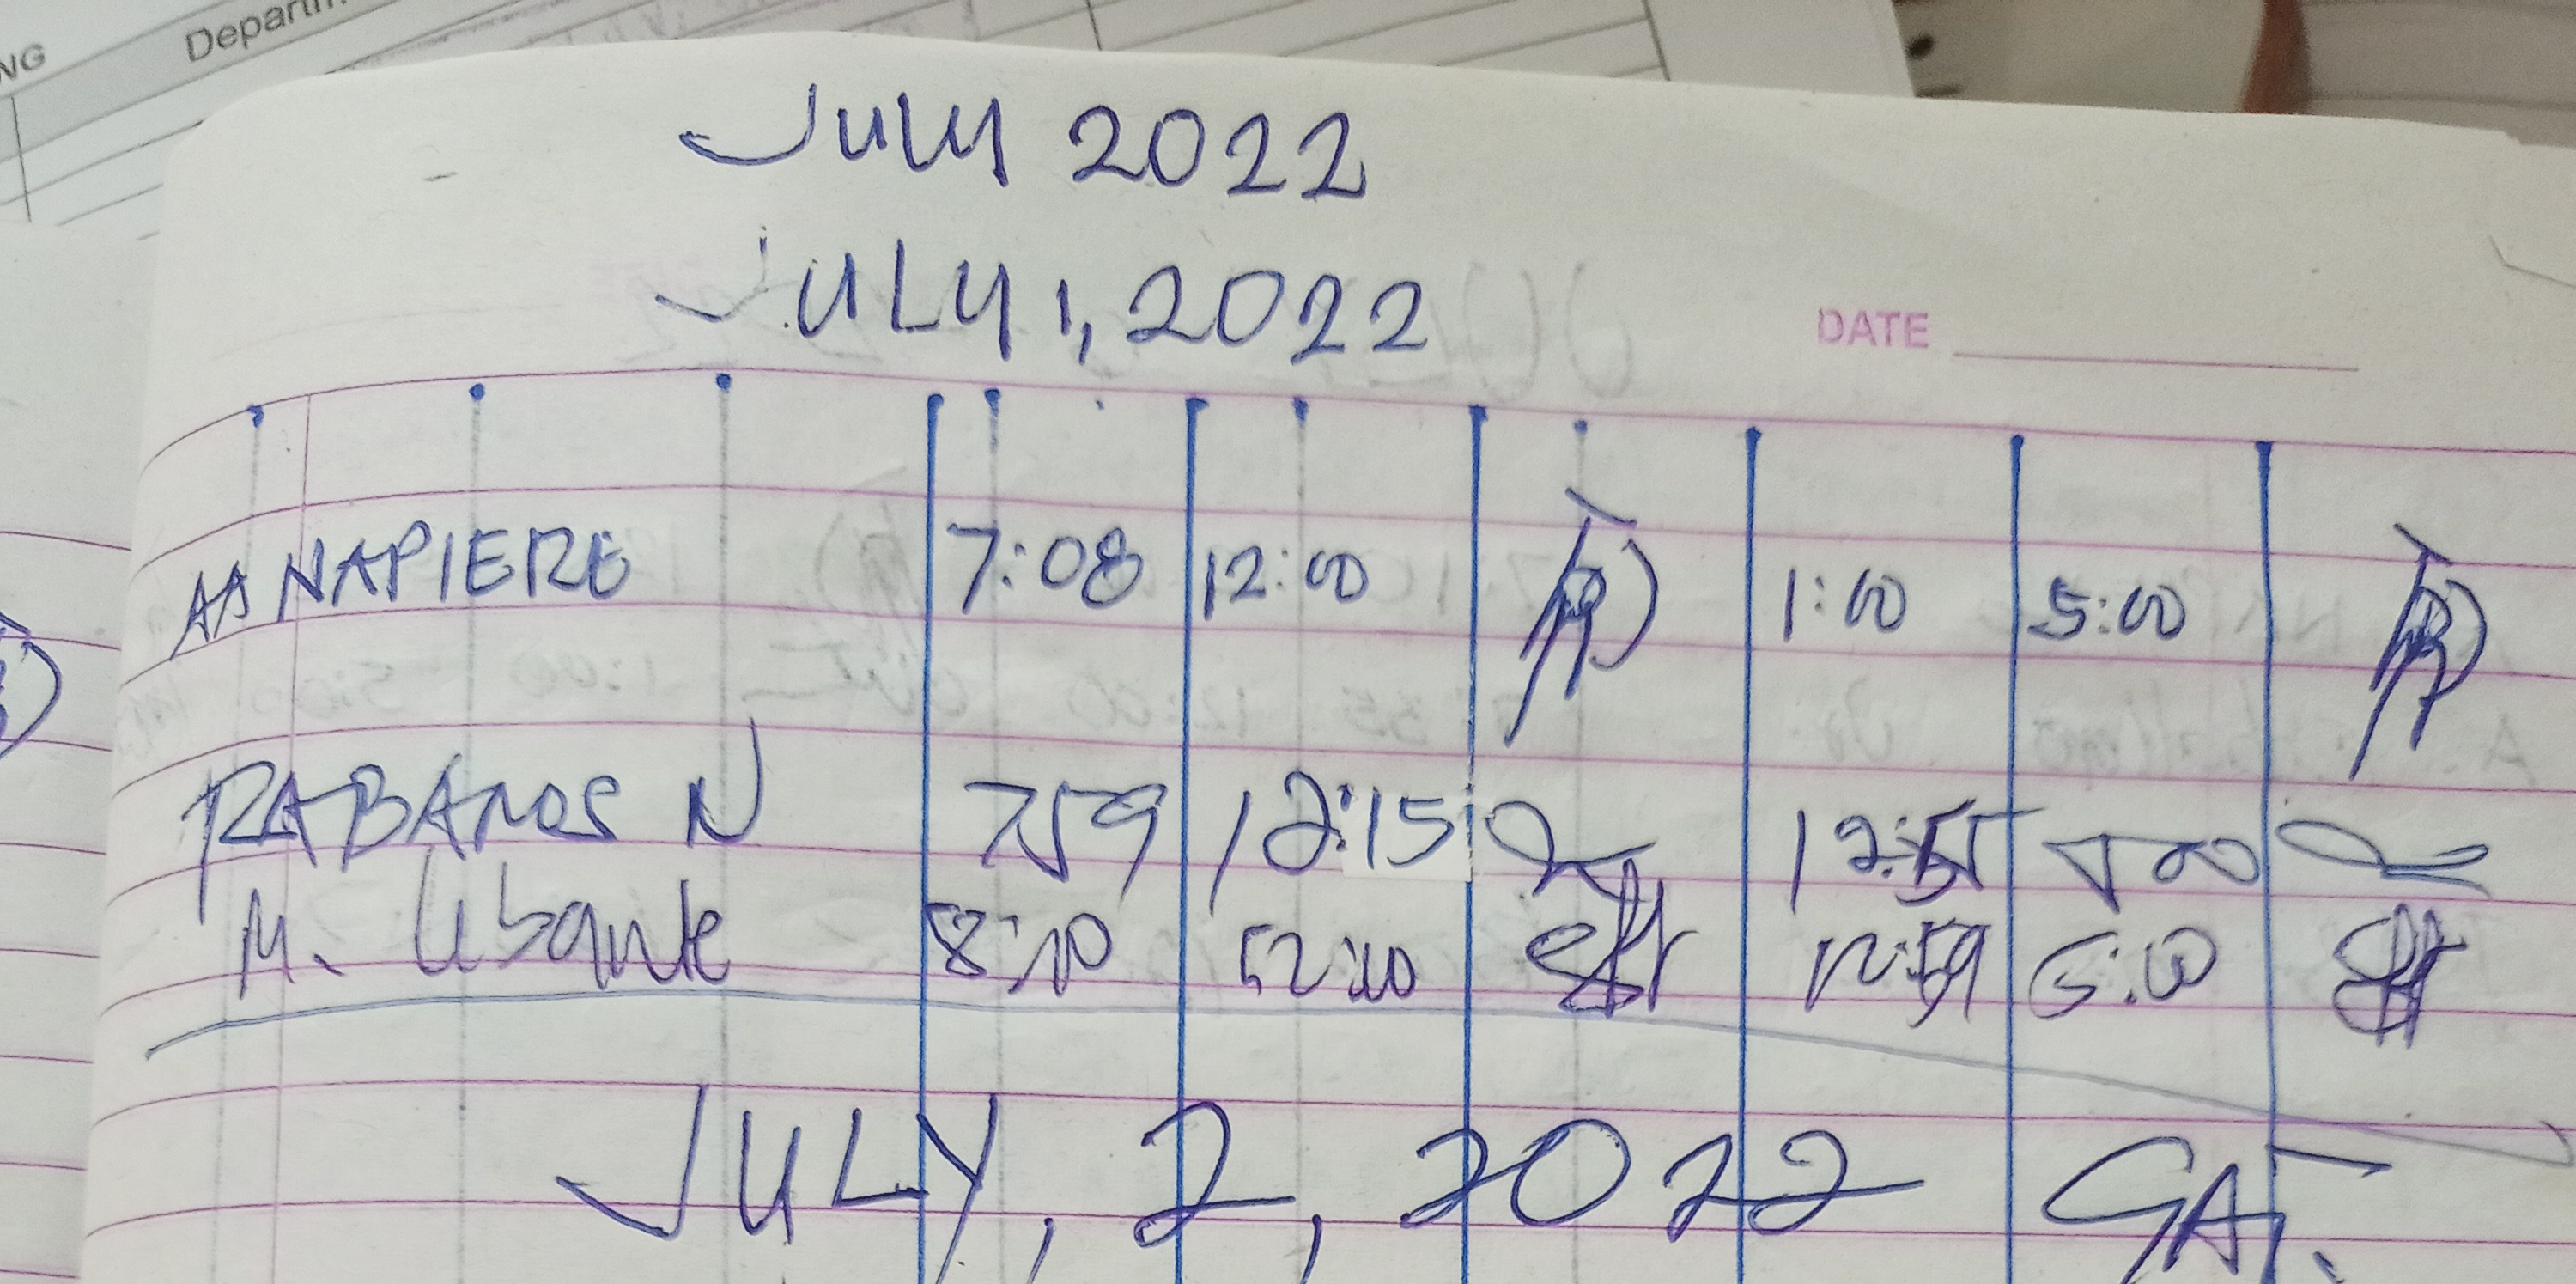 NG Departm
July 2022
JULY 1, 2022
DATE
AA NAPIERE 7:08 12:00 1:00 5:00
RABANOS N 759 12:15 12:55 500
M. Ubante 8:10 12:10 12:59 5:00
JULY, 2, 2022 SAT.